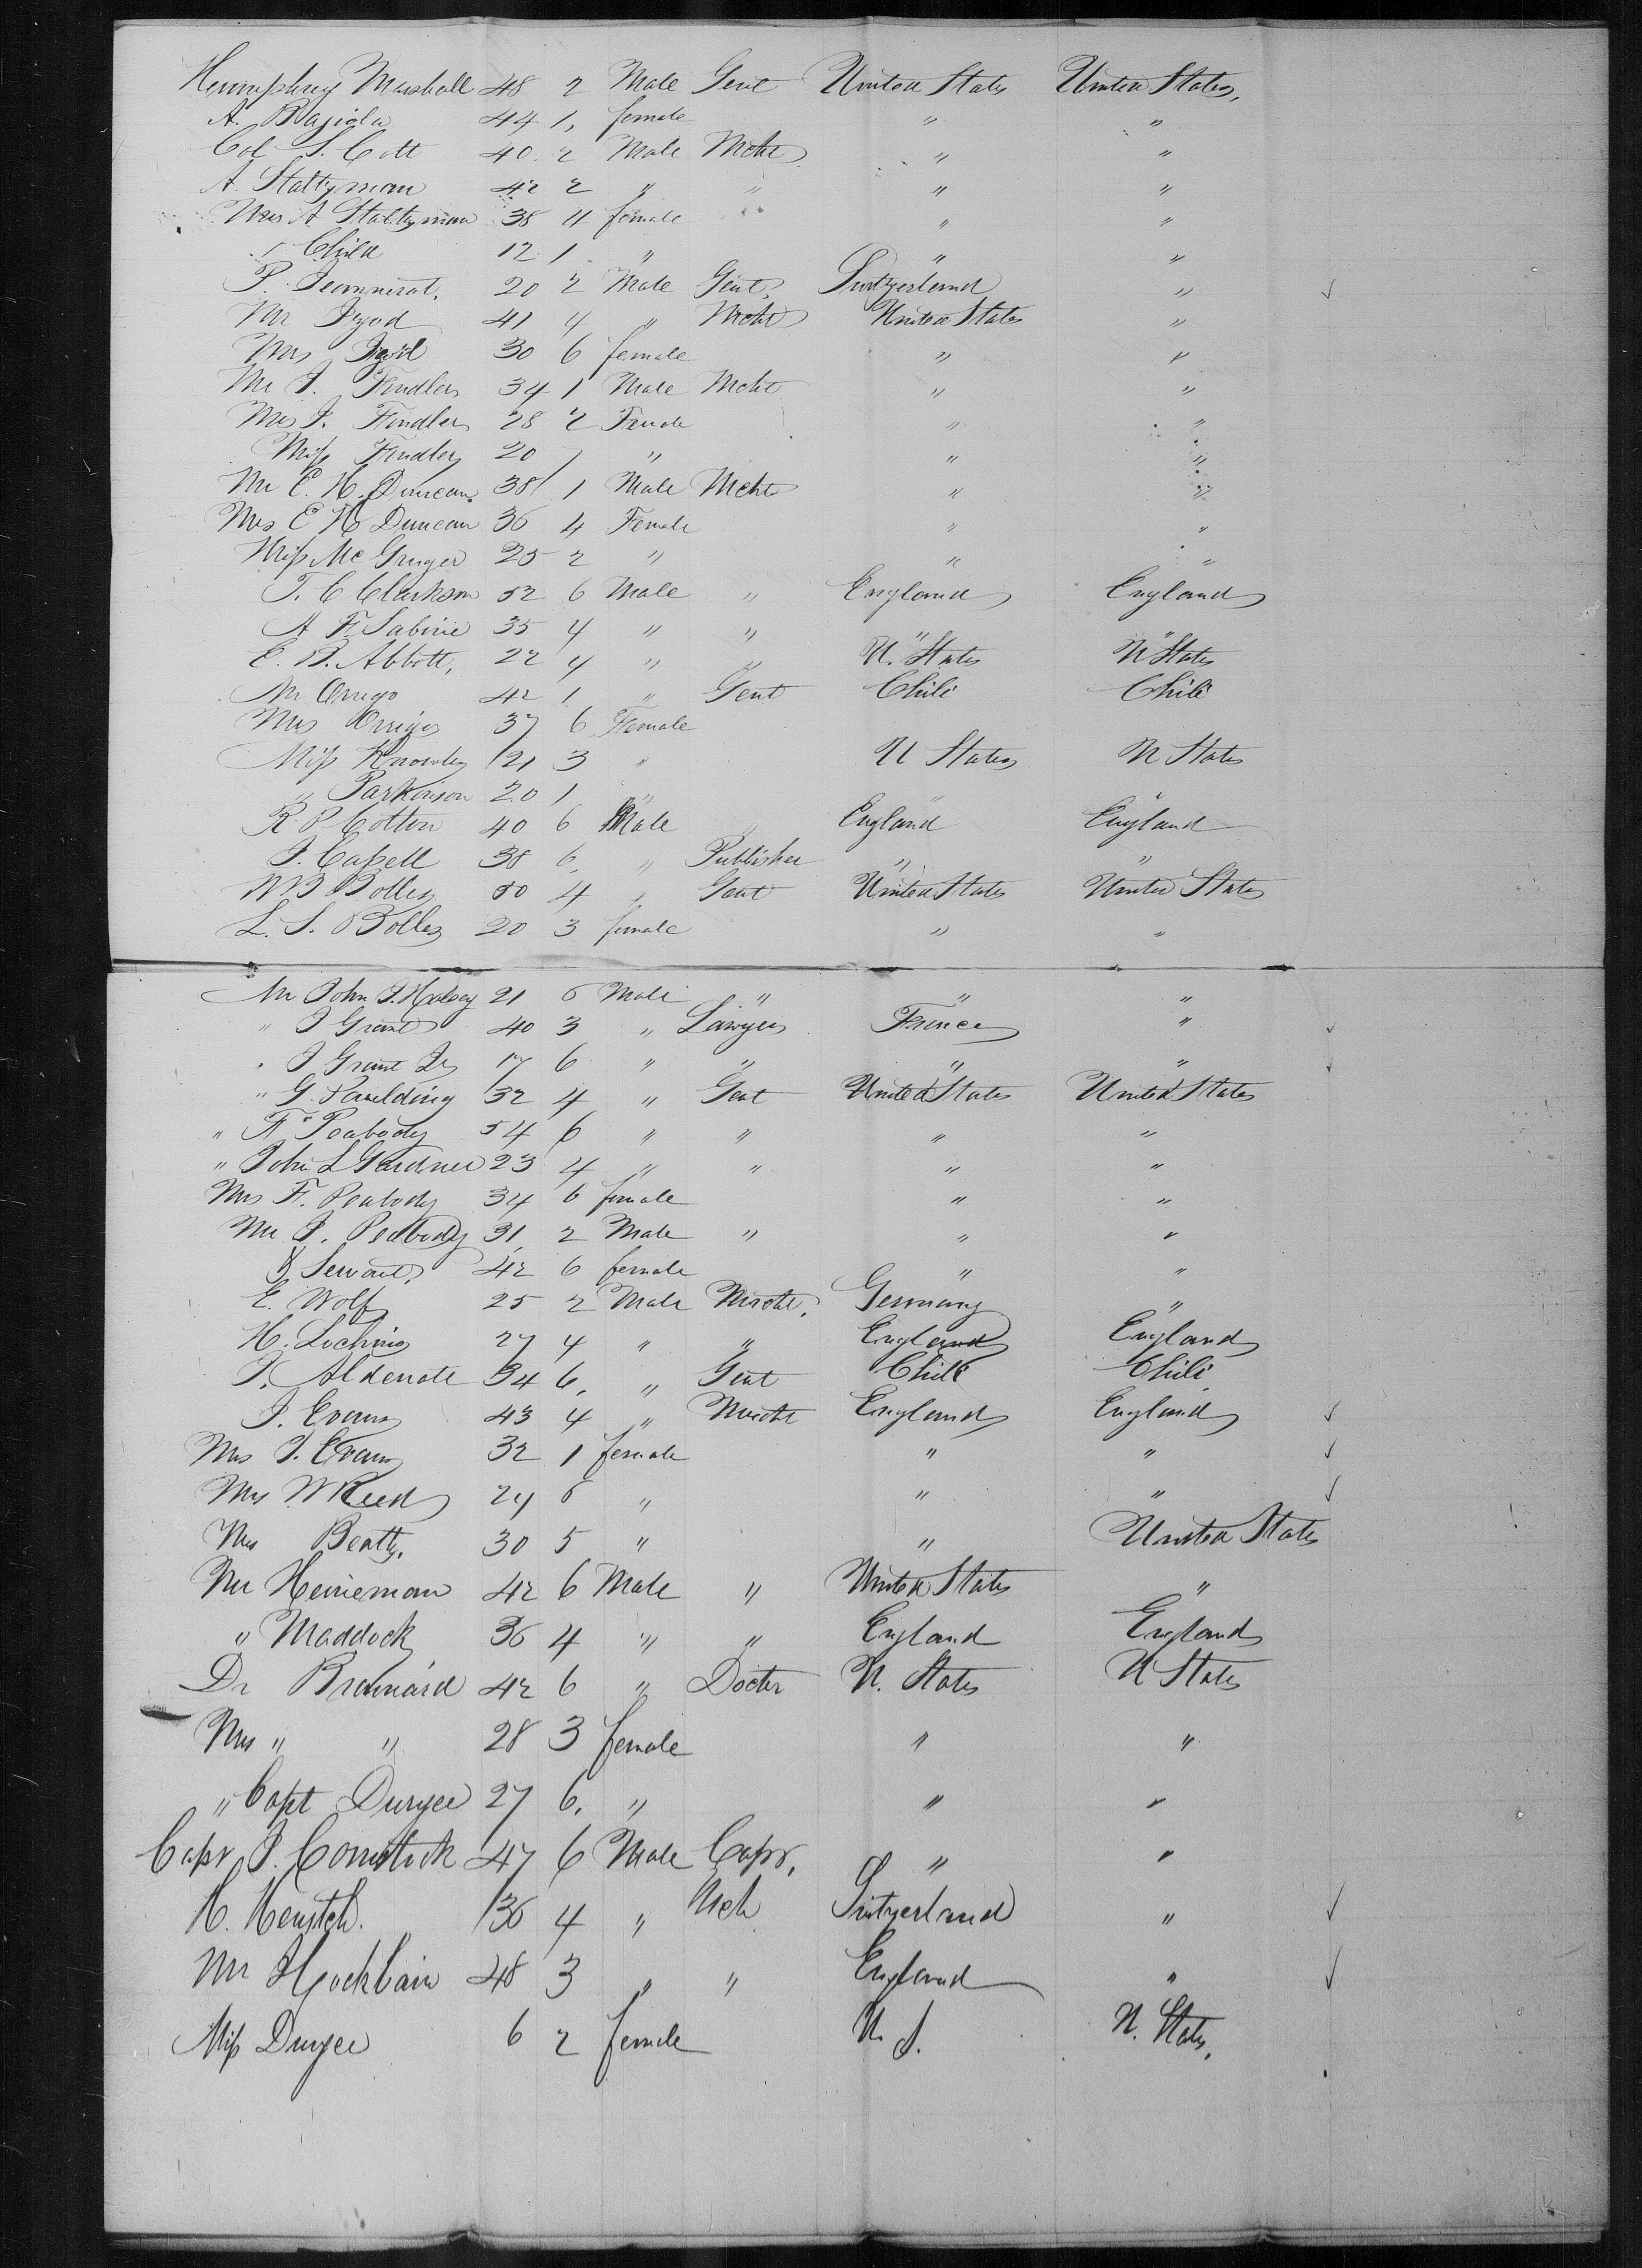 Humphrey Marshall 48 2 Male Gent United States United States,
A. Bajiola 44 1, female " "
Col S. Colt 40 2 Male Mcht " "
A. Staltzman 42 2 " " " "
Mrs A Staltzman 38 4 female " "
" Child 12 1 " " "
P. Jeannerat. 20 2 Male Gent. Switzerland "
Mr 41 4 " Mcht United States "
Mrs 30 6 female " "
Mr J. Findley 34 1 Male Mcht " "
Mrs J. Findley 28 2 Female " "
Miss Findley 20 1 " " "
Mr E. H. Duncan 38 1 Male Mcht " "
Mrs E H Duncan 36 4 Female " "
Miss McGruger 25 2 " " "
T. C Clarkson 52 6 Male " England England
A F. Sabine 35 4 " " " "
E. B. Abbott, 22 4 " " U. States U States
Mr Orrego 42 1 " Gent Chili Chili
Mrs Orrigo 37 6 Female
Miss Knowles 21 3 " U States U States
" Parkinson 20 1 " " "
R P Cotton 40 6 Male " England England
J. Cassell 38 6, " Publisher " "
W B Bolles 50 4 " Gent United States United States
L. S. Bolles 20 3 female " "
Mr John J. Halsey 21 6 Male " " "
" J Grant 40 3 " Lawyer France "
" J Grant Jr 17 6 " " " "
" G. Paulding 32 4 " Gent United States United States
" F Peabody 54 6 " " " "
" John L Gardner 23 4 " " " "
Mrs F. Peabody 34 6 female " "
Mr J. Peabody 31, 2 Male " " "
& Servant, 42 6 female " "
E. Wolf 25 2 Male Mrcht. Germany "
H. Loehnis 27 4 " " England England
J. Aldenate 34 6, " Gent Chili Chili
J. Evans 43 4 " Mrcht England England
Mrs J. Evans 32 1 female " "
Mrs W Reed 24 6 " " "
Mrs Beatty. 30 5 " " United States
Mr Heineman 42 6 Male " United States "
" Maddock 36 4 " " England England
Dr Brainard 42 6 " Doctor U. States U States
Mrs " " 28 3 female " "
" Capt Duryee 27 6, " " "
Capt J. Comstock 47 6 Male Capt, " "
H. Hentsch. 36 4 " Mch Switzerland "
Mr Hockbain 48 3 " " England "
Miss Duryee 6 2 female U. S. U. States,